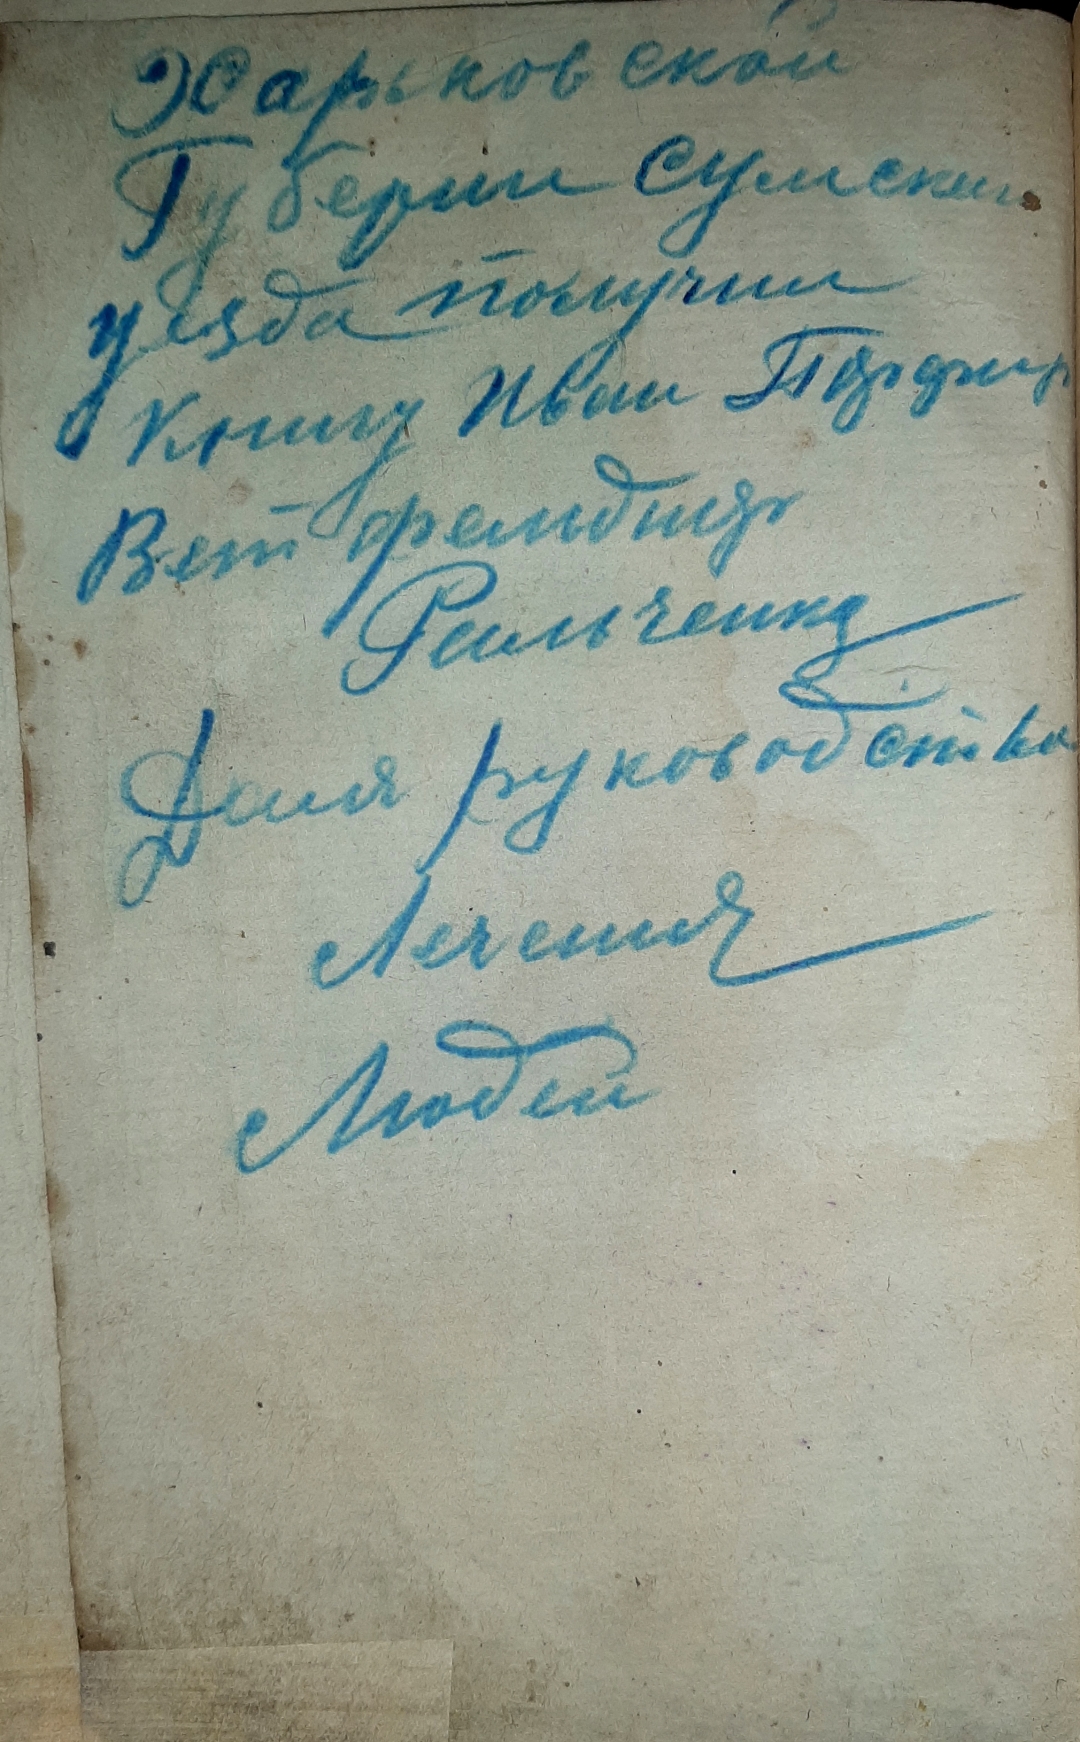 Харьковской
Губерии Сумскаи
уезда получил
Книгу Иван
Вет фельдшер
Рильченко
Для руководства
Лечения
Людей